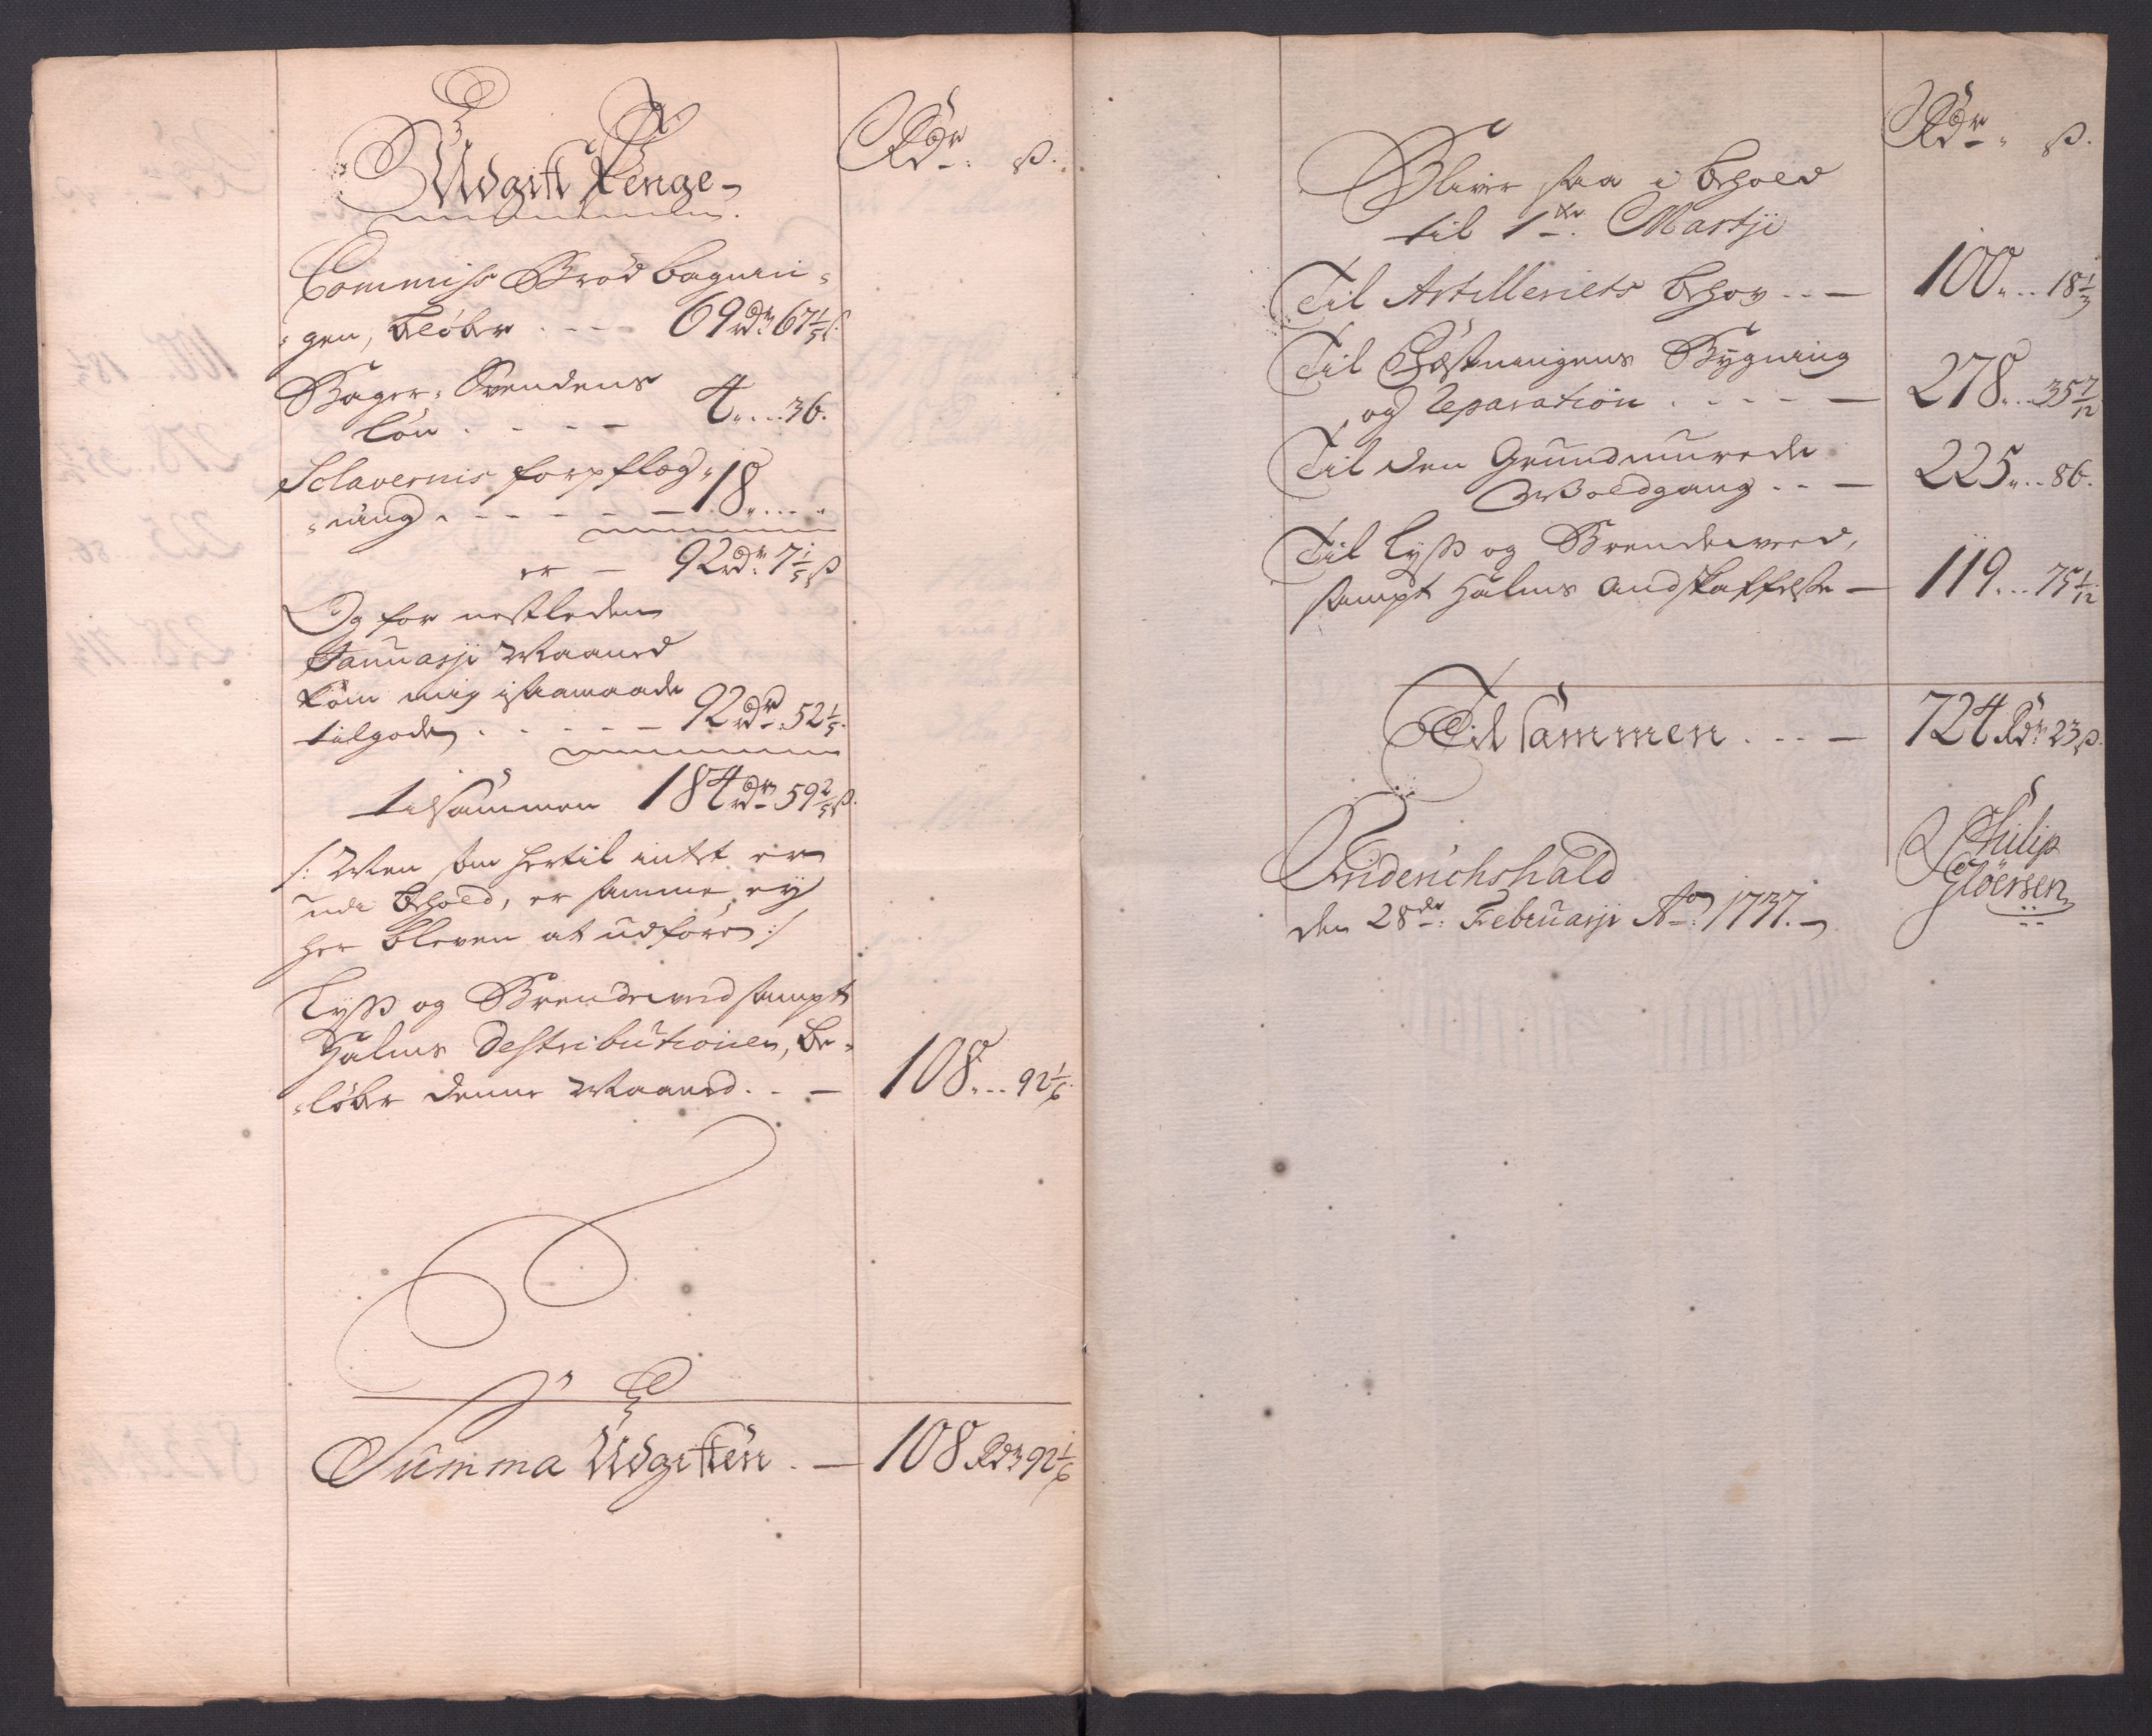 Udgift Penge
Rdr. ß.
Commiss Brød bagnin-
gen, beløber . . . 69 rdr 67 1/5 ß.
Bager-Svendens
løn . . . . 4 . . . 36.
Sclavernis forpfleg-
ning . . . . . . 18 . . . .
er — 92 rdr: 7 1/5 ß
Og for nestleden
Januarji Maaned
kom mig i saamaade
tilgode . . . . . 92 rdr: 52 1/5.
tilsammen 184 rdr 59 2/5 ß.
/: Men som hertil intet er
udi behold, er samme ey
her bleven at udføre :/
Lyss og Brendeved sampt
Halms Destributionen, be-
løber denne Maaned . . — 108 . . . 92 1/6.
Summa Udgiften . — 108 Rdr 92 1/6
Rdr. ß.
Bliver saa i behold
til 1te. Martji
Til Artilleriets behov . . — 100 . . . 18 1/3
Til Fæstningens Bygning
og Reparation . . . . — 278 . . . 35 7/12
Til den Grundmurede
Woldgang . . — 225 . . . 86.
Til Lyss og Brendeveed,
sampt Halms Andskaffelse — 119 . . . 75 1/12
Til sammen . . . — 724 Rdr 23 ß.
Friderichshald
den 28de. Februarji Ao. 1737.
Philip
Gløersen